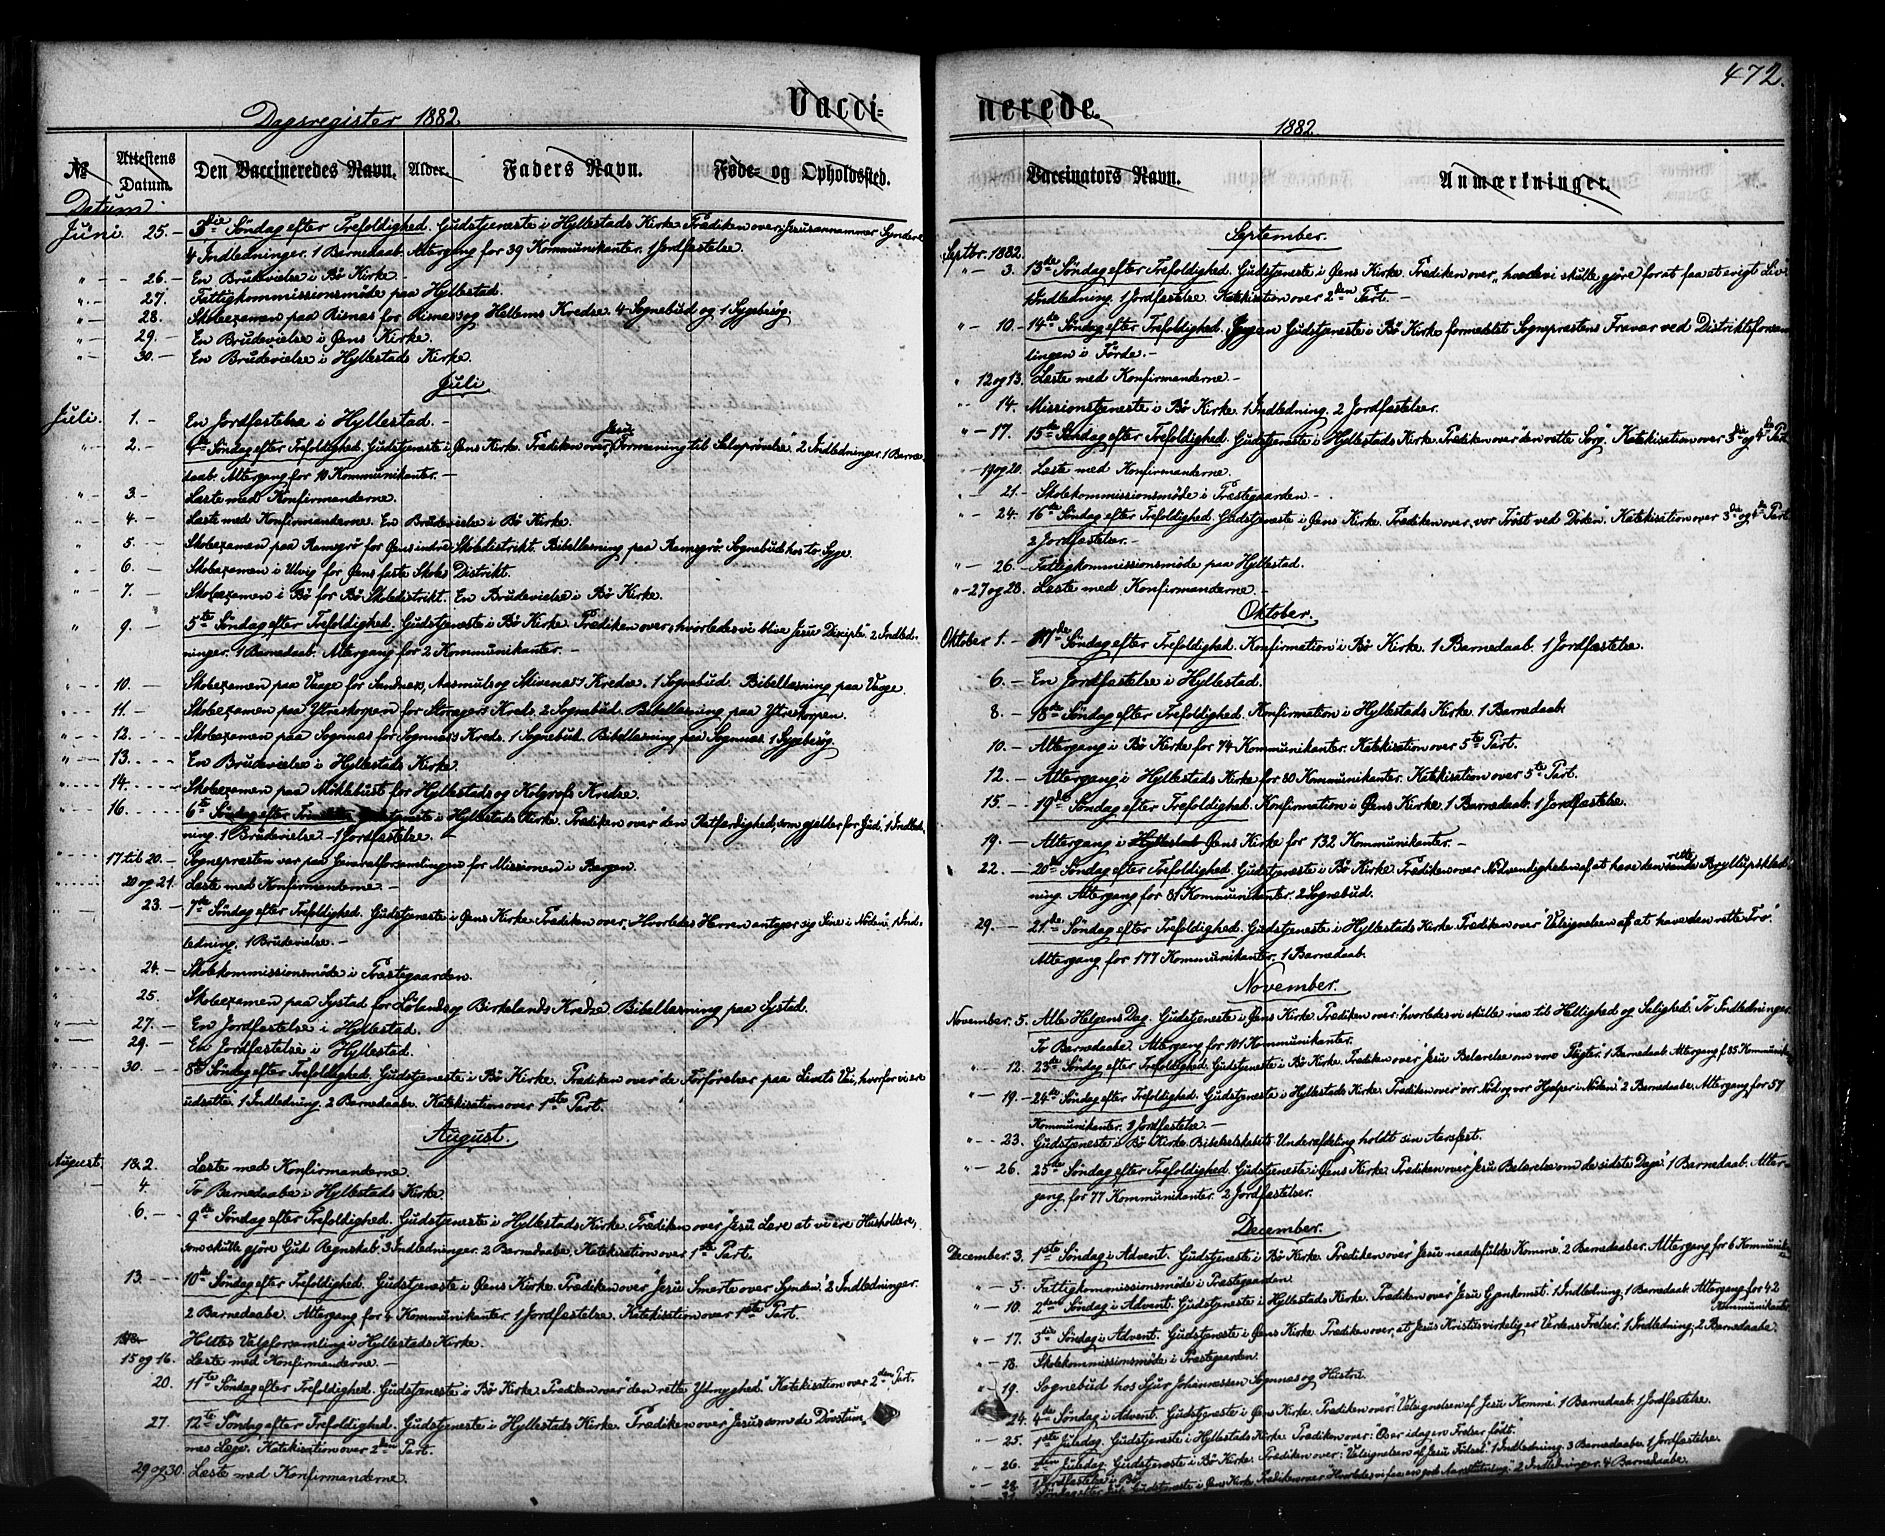 Dagsregister 1882.
Vacci=
No
Attestens Datum.
Den Vaccineredes Navn.
Alder.
Faders Navn.
Føde- og Opholdssted.
Datum.
Juni 25. - 3die Søndag efter Trefoldighed. Gudstjeneste i Hyllestads Kirke. Prædiken over: Jesus annammer Syndere
4 Indledninger. 1 Barnedaab. Altergang for 39 Kommunikanter. 1 Jordfæstelse.
" - 26. - En Brudevielse i Bø Kirke. -
" - 27. Fattigkommissionsmøde paa Hyllestad.
" - 28. Skoleexamen paa Risnæs for Risnæs og Hellems Kredse. 4 Sognebud og 1 Sygebesøg.
" - 29. - En Brudevielse i Øens Kirke.
" - 30. - En Brudevielse i Hyllestads Kirke.
Juli
Juli. 1. - En Jordfæstelse i Hyllestad. -
" - 2. - 4de Søndag efter Trefoldighed. Gudstjeneste i Øens Kirke. Prædiken over Jesu "Formaning til Selvprøvelse." 2 Indledninger. 1 Barne-
daab. Altergang for 10 Kommunikanter. -
" - 3. - Læste med Konfirmanderne.
" - 4. - Læste med Konfirmanderne. En Brudevielse i Bø Kirke.
" 5. - Skoleexamen paa Ramsgrø for Øens indre Skoledistrikt. Bibellæsning paa Ramsgrø. Sognebud hos to Syge.
" - 6. - Skoleexamen i Ulvig for Øens faste Skoles Distrikt.
" - 7. - Skoleexamen i Bø for Bø Skoledistrikt. En Brudevielse i Bø Kirke.
" 9. - 5te Søndag efter Trefoldighed. Gudstjeneste i Bø Kirke. Prædiken over: "hvorledes vi blive Jesu Disciple." 2 Indled-
ninger. 1 Barnedaab. Altergang for 2 Kommunikanter. -
10. - Skoleexamen paa Vaage for Sandnæs, Aasmuls og Skivenæs's Kredse. 1 Sognebud. Bibellæsning paa Vaage.
11. - Skoleexamen paa Ytreskorpen for Storagers Kreds. 2 Sognebud. Bibellæsning paa Ytreskorpen.
12. - Skoleexamen paa Sognnæs for Sognnæs's Kreds. 1 Sognebud. Bibellæsning paa Sognnæs. 1 Sygebesøg.
13. En Brudevielse i Hyllestads Kirke.
14. Skoleexamen paa Møklebust for Hyllestads og Kolgrofs Kredse.
16. 6te Søndag efter Gudstjeneste i Hyllestads Kirke. Prædiken over "den Retfærdighed, som gjælder for Gud." 1 Indled-
ning. 1 Brudevielse - 1 Jordfæstelse.
17 til 20. - Sognepresten var paa Generalforsamlingen for Missionen i Bergen.
20 og 21. Læste med Konfirmanderne. -
23. - 7de Søndag efter Trefoldighed. Gudstjeneste i Øens Kirke. Prædiken over, Hvorledes Herren antager sig Sine i Nøden". 1 Ind-
ledning. 1 Brudevielse. -
24. - Skolekommissionsmøde i Præstegaarden.
25. Skoleexamen paa Systad for Lølands og Birkelands Kredse. Bibellæsning paa Systad.
27. - En Jordfæstelse i Hyllestad.
29. - En Jordfæstelse i Hyllestad.
30. - 8de Søndag efter Trefoldighed. Gudstjeneste i Bø Kirke. Prædiken over "de Forførelser paa Livets Vei, hvorfor vi ere
udsatte. 1 Indledning. 2 Barnedaabe. Katekisation over 1ste Part.
August.
August. 1&2. Læste med Konfirmanderne.
4. To Barnedaabe i Hyllestads Kirke.
6. - 9de Søndag efter Trefoldighed. Gudstjeneste i Hyllestads Kirke. Prædiken over "Jesu Lære at vi ere Husholdere,
som skulle gjøre Gud Regnskab." 3 Indledninger. 2 Barnedaabe. Katekisation over 1ste Part.
13. 10de Søndag efter Trefoldighed. Gudstjeneste i Øens Kirke. Prædiken over "Jesu Smerte over Synden." 2 Indledninger.
2 Barnedaabe. Altergang for 4 Kommunikanter. 1 Jordfæstelse. Katekisation over 1ste Part.
Holdtes Valgforsamling i Hyllestads Kirke.
15 og 16. Læste med Konfirmanderne. -
20. 11te Søndag efter Trefoldighed. Gudstjeneste i Bø Kirke. Prædiken over "den rette Ydmyghed." Katekisation over 2den Part.
27. 12te Søndag efter Trefoldighed. Gudstjeneste i Hyllestads Kirke. Prædiken over "Jesus om de Døvstum-
mes Læge." Katekisation over 2den Part.
29 og 30. Læste med Konfirmanderne.
472.
nerede.
1882.
Vaccinators Navn.
Anmærkninger.
September.
Septbr. 1882.
" - 3. 13de Søndag efter Trefoldighed. Gudstjeneste i Øens Kirke. Prædiken over, "hvad vi skulle gjøre for at faa et evigt Liv."
1 Indledning. 1 Jordfæstelse. Katekisation over 2den Part. -
" - 10. - 14de Søndag efter Trefoldighed. Ingen Gudstjeneste i Bø Kirke formedelst Sogneprestens Fravær ved Distriktsforsam-
lingen i Førde. -
" 12 og 13. Læste med Konfirmanderne. -
" 14. Missionstjeneste i Bø Kirke. 1 Indledning. 2 Jordfæstelser.
" - 17. 15de Søndag efter Trefoldighed. Gudstjeneste i Hyllestads Kirke. Prædiken over "den rette Sorg." Katekisation over 3die og 4de Part.
" 19 og 20. Læste med Konfirmanderne.
21. - Skolekommissionsmøde i Præstegaarden. -
24. 16de Søndag efter Trefoldighed. Gudstjeneste i Øens Kirke. Prædiken over, vor Trøst ved Døden". Katekisation over 3die og 4de Part.
2 Jordfæstelser. -
" - 26. - Fattigkommissionsmøde paa Hyllestad.
" - 27 og 28. Læste med Konfirmanderne. -
Oktober.
Oktober 1. - 17de Søndag efter Trefoldighed. Konfirmation i Bø Kirke. 1 Barnedaab. 1 Jordfæstelse.
6. - En Jordfæstelse i Hyllestad.
8. - 18de Søndag efter Trefoldighed. Konfirmation i Hyllestads Kirke. 1 Barnedaab.
10. - Altergang i Bø Kirke for 74 Kommunikanter. Katekisation over 5te Part.
12. - Altergang i Hyllestads Kirke for 80 Kommunikanter. Katekisation over 5te Part.
15. - 19de Søndag efter Trefoldighed. Konfirmation i Øens Kirke. 1 Barnedaab. 1 Jordfæstelse.
19. - Altergang i Hyllestad Øens Kirke for 132 Kommunikanter. -
22. - 20de Søndag efter Trefoldighed. Gudstjeneste i Bø Kirke. Prædiken over Nødvendigheden af at have den rette Bryllupsklæd-
ning. Altergang for 81 Kommunikanter. 2 Sognebud.
29. - 21de Søndag efter Trefoldighed. Gudstjeneste i Hyllestads Kirke. Prædiken over "Velsignelsen af at have den rette Tro".
Altergang for 177 Kommunikanter. 1 Barnedaab.
November.
November. 5. Alle Helgens Dag. Gudstjeneste i Øens Kirke. Prædiken over: "hvorledes vi skulle naa til Hellighed og Salighed." To Indledninger.
To Barnedaabe. Altergang for 101 Kommunikanter.
" - 12. 23de Søndag efter Trefoldighed. Gudstjeneste i Bø Kirke. Prædiken over "Jesu Belærelse om vore Pligter." 1 Barnedaab. Altergang f. 85 Kommunik.
" - 19. - 24de Søndag efter Trefoldighed. Gudstjeneste i Hyllestads Kirke. Prædiken over "vor Nød og vor Hjælper i Nøden." 2 Barnedaabe. Altergang for 57
Kommunikanter. 1 Jordfæstelse. -
" - 23. Gudstjeneste i Bø Kirke. Bibelselskabets Underafdeling holdt sin Aarsfest.
" - 26. 25de Søndag efter Trefoldighed. Gudstjeneste i Øens Kirke. Prædiken over "Jesu Belærelse om de sidste Dage." 1 Barnedaab. Alter-
gang for 77 Kommunikanter. 2 Jordfæstelser.
December.
December. 3. 1ste Søndag i Advent. Gudstjeneste i Bø Kirke. Prædiken over "Jesu naadefulde Komme." 2 Barnedaaber. Altergang for 6 Kommunikan.
" - 5. Fattigkommissionsmøde i Præstegaarden.
" - 10. 2den Søndag i Advent. Gudstjeneste i Hyllestads Kirke. Prædiken over "Jesu Gjenkomst." 1 Indledning. 1 Barnedaab. Altergang for 42
Kommunikanter.
" - 17. 3die Søndag i Advent. Gudstjeneste i Øens Kirke. Prædiken over, at Jesus Kristus virkelig er Verdens Frelser. 1 Indledning. 2 Barnedaabe.
" - 18. Skolekommissionsmøde i Præstegaarden.
" - 19. Sognebud hos Sjur Johannessen Sognnæs og Hustru.
24. 4de Søndag i Advent. Gudstjeneste i Øens Kirke. Prædiken over: "Velsignelsen af Jesu Komme." 1 Barnedaab. 1 Jordfæstelse.
" - 25. 1ste Juledag. Gudstjeneste i Hyllestads Kirke. Prædiken over: "Os er idag en Frelser født.
" - 26. 2den Juledag. Gudstjeneste i Bø Kirke. Prædiken over: Velsignelsen af Jesu Fødsel." 1 Indledning. 3 Barnedaabe. 1 Jordfæstelse.
" - 28. 1 Jordfæstelse i Bø.
" - 31. Søndag efter Jul. Gudstjeneste i Øens Kirke. Prædiken over Hvorledes vi faa en god Aarsslutning." 2 Indledninger. 4 Barnedaabe.